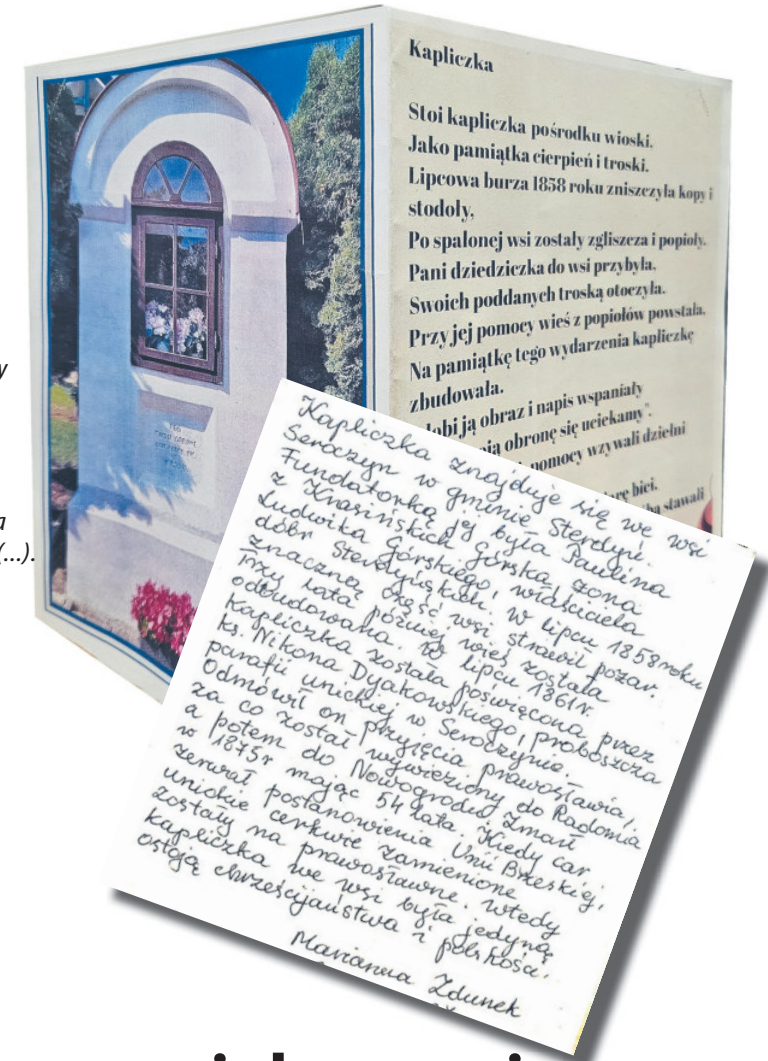 y
a
(...).
Kapliczka
Stoi kapliczka pośrodku wioski.
Jako pamiątka cierpień i troski.
Lipcowa burza 1858 roku zniszczyła kopy i
stodoły,
Po spalonej wsi zostały zgliszcza i popioły.
Pani dziedziczka do wsi przybyła.
Swoich poddanych troską otoczyła.
Przy jej pomocy wieś z popiołów powstała.
Na pamiątkę tego wydarzenia kapliczkę
zbudowała.
ją obraz i napis wspaniały
obronę się uciekamy".
pomocy wzywali dzielni
bici.
stawali
Kapliczka znajduje się we wsi
Seroczyn w gminie Sterdyń.
Fundatorką jej była Paulina
z Krasińskich Górska, żona
Ludwika Górskiego, właściciela
dóbr Sterdyńskich. W lipcu 1858 roku
znaczną część wsi strawił pożar.
Trzy lata później wieś została
odbudowana. W lipcu 1861r.
Kapliczka została poświęcona przez
ks. Nikona Dyakowskiego, proboszcza
parafii unickiej w Seroczynie.
Odmówił on przyjęcia prawosławia,
za co został wywieziony do Radomia,
a potem do Nowogrodu. Zmarł
w 1875r mając 54 lata. Kiedy car
zerwał postanowienia Unii Brzeskiej,
unickie cerkwie zamienione
zostały na prawosławne. Wtedy
kapliczka we wsi była jedyną
ostoją chrześcijaństwa i polskości.
Marianna Zdunek